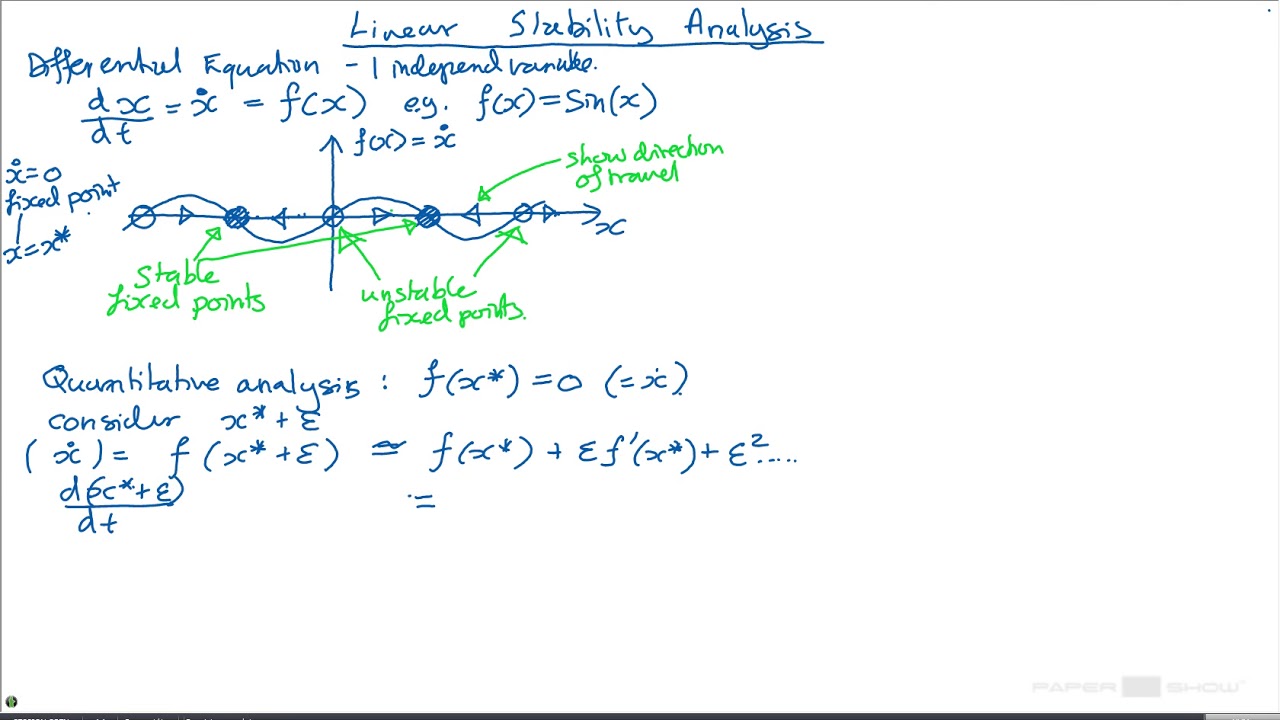 Linear Stability Analysis
Differential Equation - 1 independ variable.
dx/dt = ẋ = f(x) e.g. f(x) = Sin(x)
f(x) = ẋ
show direction
of travel
ẋ = 0
fixed point
x = x*
x
Stable
fixed points
unstable
fixed points.
Quantitative analysis : f(x*) = 0 (= ẋ)
consider x* + ε
(ẋ) = f(x* + ε) ≃ f(x*) + ε f'(x*) + ε² .....
d(x* + ε)/dt =
PAPER SHOW™